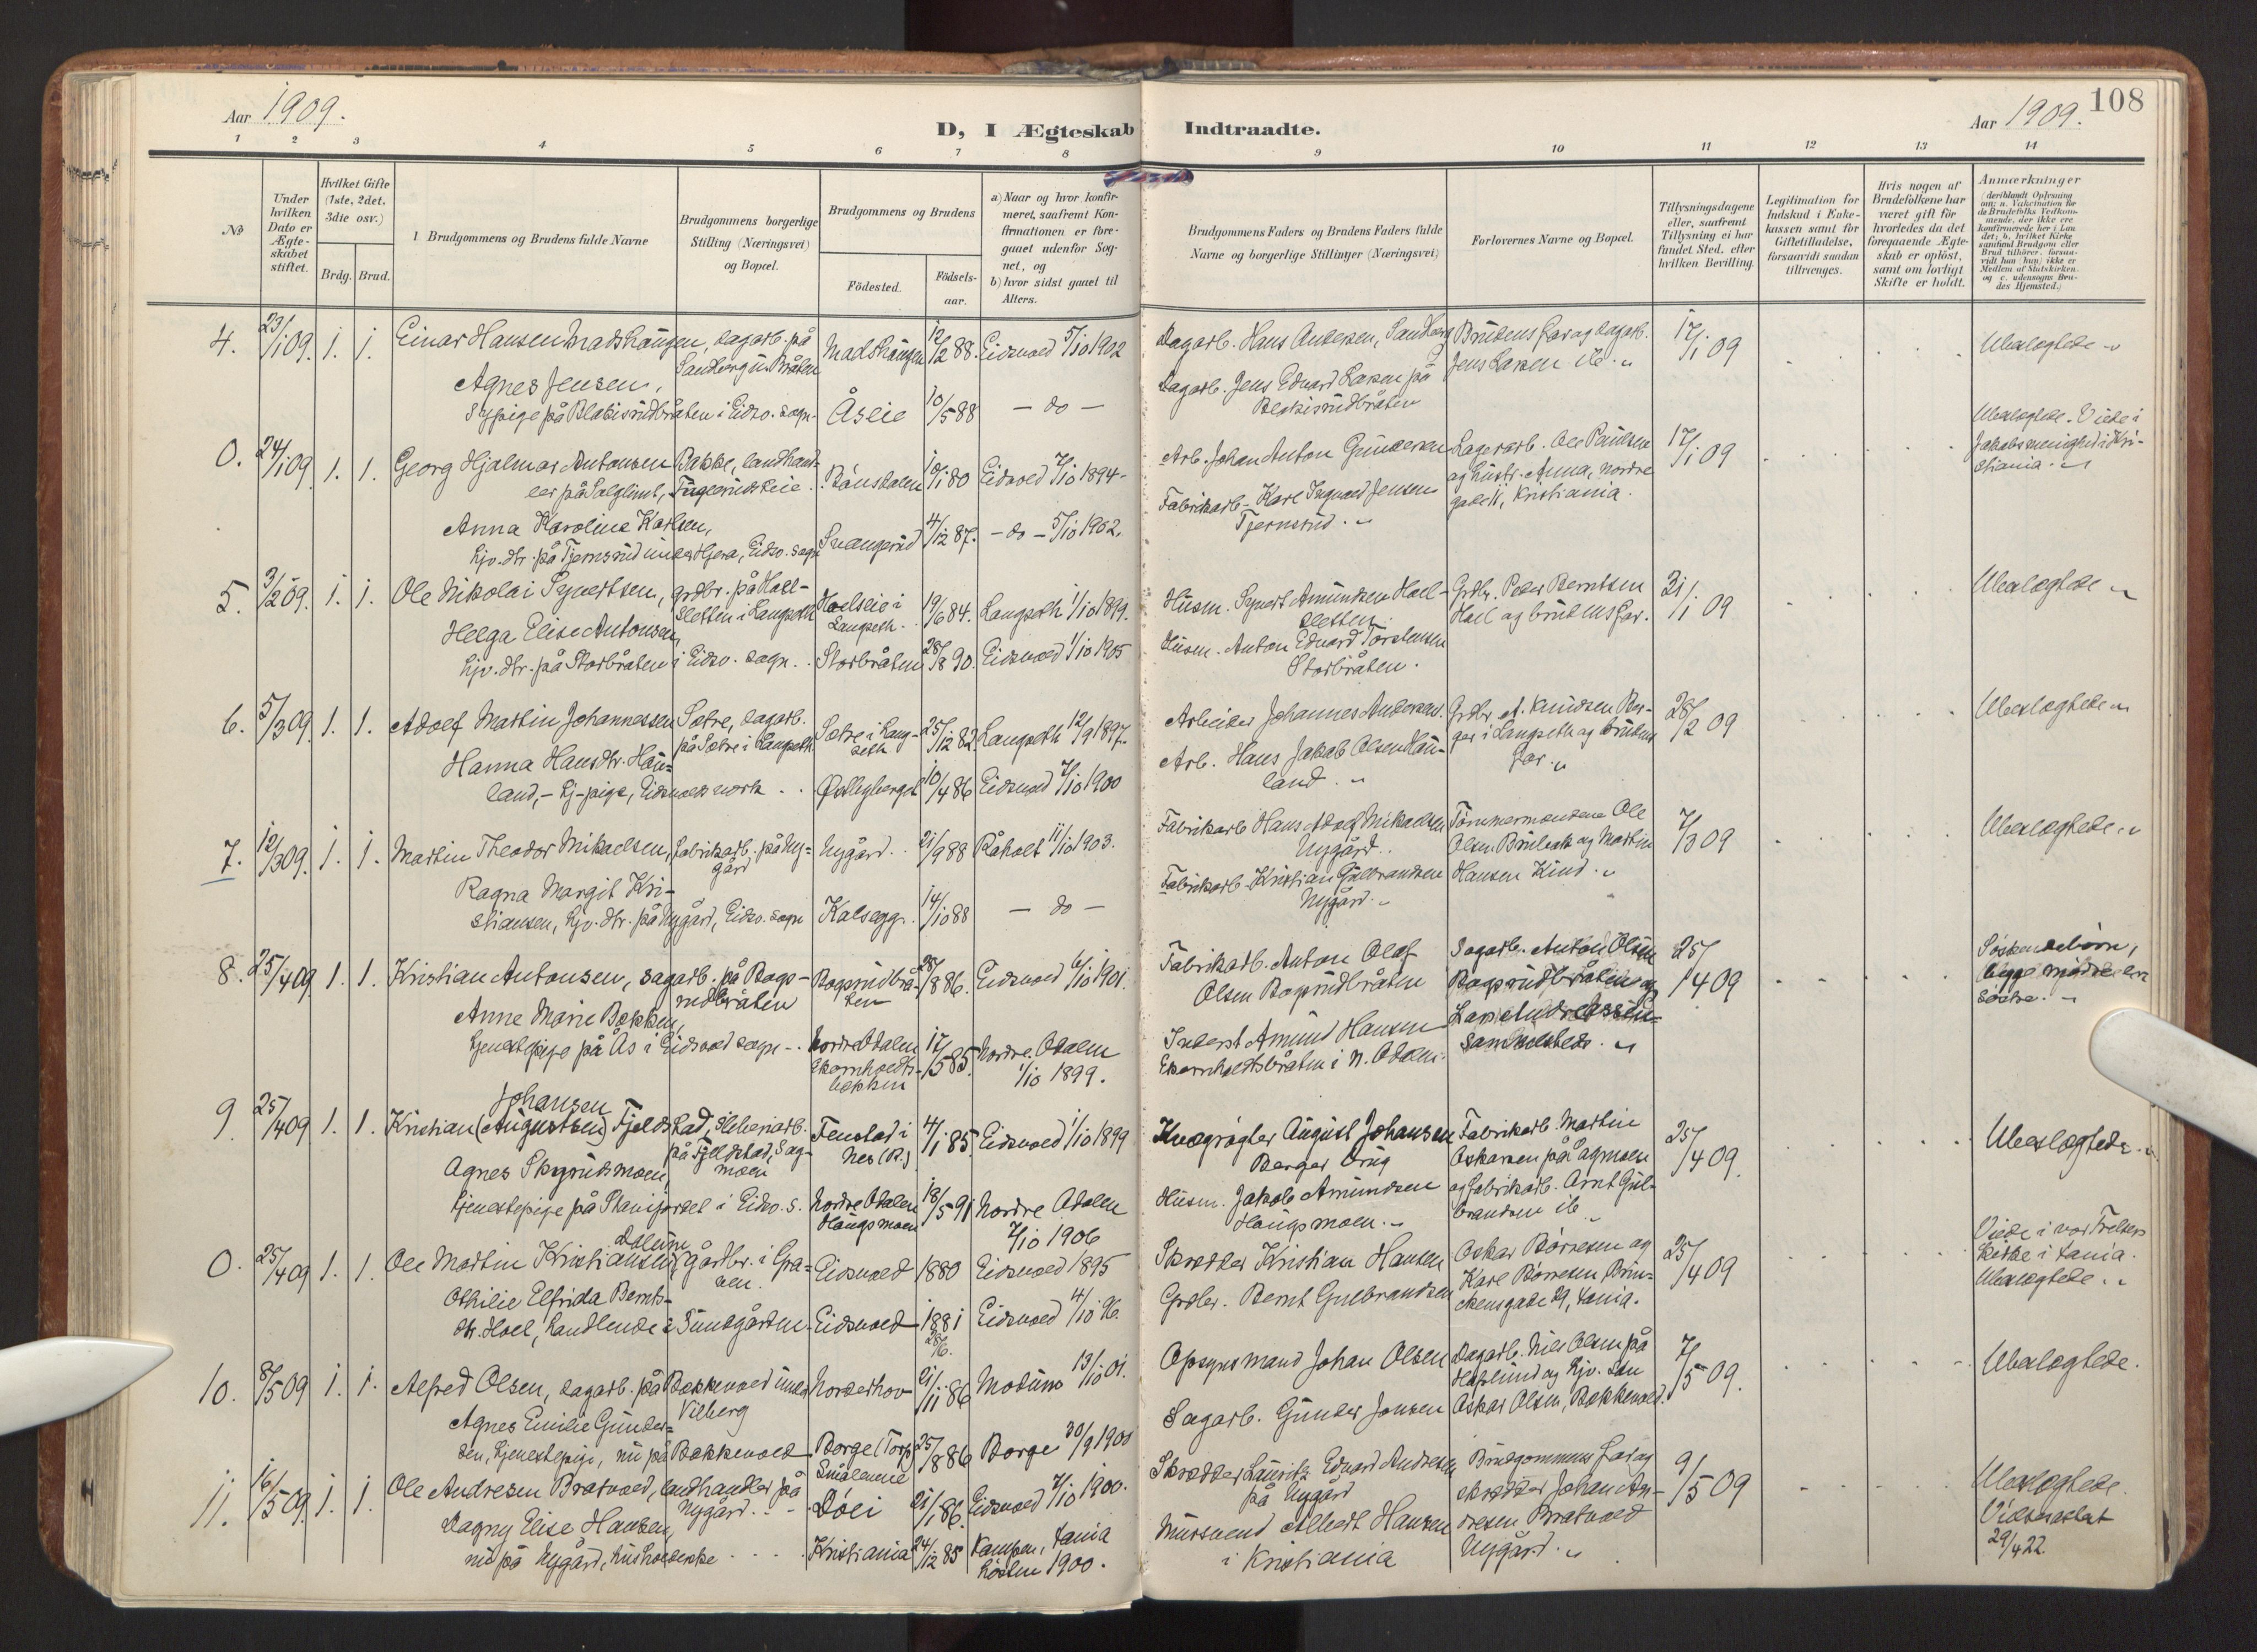 Aar 1909.
D, I Ægteskab Indtraadte.
Aar 1909.
108
1 2 3 4 5 6 7 8 9 10 11 12 13 14
No
Under hvilken Dato er Ægteskabet stiftet.
Hvilket Gifte (1ste, 2det, 3die osv.)
Brdg. Brud.
Brudgommens og Brudens fulde Navne
Brudgommens borgerlige Stilling (Næringsvei) og Bopæl.
Brudgommens og Brudens
Födested.
Födselsaar.
a) Naar og hvor konfirmeret, saafremt Konfirmationen er foregaaet udenfor Sognet, og
b) hvor sidst gaaet til Alters.
Brudgommens Faders og Brudens Faders fulde Navne og borgerlige Stillinger (Næringsvei)
Forlovernes Navne og Bopæl.
Tillysningsdagene eller, saafremt Tillysning ei har fundet Sted, efter hvilken Bevilling
Legitimation for Indskud i Enkekassen samt for Giftetilladelse, forsaavidt saadan tiltrænges.
Hvis nogen af Brudefolkene har været gift för hvorledes da det foregaaende Ægteskab er oplöst, samt om lovligt Skifte er holdt.
Anmærkninger
4. 23/1 09. 1. 1. Einar Hansen Madshaugen, dagarb. på Sandberg u. Bråten Madshaugen 12/2 88. Eidsvold 5/10 1902
Dagarb. Hans Andersen, Sandberg Brudens far og dagarb. Jens Larsen ib. 17/1 09 Ubeslægtede
Agnes Jensen,
Sypige på i Eidsv. sogn. Åseie 10/5 88 - do -
Dagarb. Jens Edvard Larsen på
0. 24/1 09 1. 1. Georg Hjalmar Antonsen Bakke, landhandler på Solglimt, Fuglerudseie. Rånsdalen 10/1 80 Eidsvold 7/10 1894
Arb. Johan Anton Gundersen Lagerarb. Ole Paulsen og hustr. Anna, Nordre gade 11, Kristiania. 17/1 09 Ubeslægtede. Viede i Jakobs menighed i Kristiania
Anna Karoline Karlsen,
hjv. dtr. på Tjernsrud under Hjera, Eidsv. sogn Svangerud 4/12 87. - do - 5/10 1902.
Fabrikarb. Karl Ingvald Jensen Tjernsrud.
5. 3/2 09. 1. 1. Ole Nikolai Syvertsen, grdbr. på Hoelsletten i Langseth Hoelseie i Langseth 19/6 84. Langseth 1/10 1899.
Husm. Syvert Amundsen Hoelsletten Grdbr. Peder Berntsen Hoel og brudens far. 31/1 09 Ubeslægtede
Helga Elise Antonsen,
hjv. dtr. på Storbråten i Eidsv. sogn. Storbråten 28/8 90. Eidsvold 1/10 1905
Husm. Anton Edvard Torstensen Storbråten.
6. 5/3 09. 1. 1. Adolf Martin Johannessen Sætre, dagarb. på Sætre i Langseth Sætre i Langseth 25/12 82. Langseth 12/9 1897.
Arbeider Johannes Andersen. Grdbr. A. Knudsen Berger i Langseth og brudens far. 28/2 09 Ubeslægtede
Hanna Hansdtr. Hauland, - tj-pige, Eidsvolds verk Østbybergel 10/4 86 Eidsvold 7/10 1900
Arb. Hans Jakob Olsen Hauland.
7. 12/3 09. 1. 1. Martin Theodor Mikaelsen, fabrikarb. på Nygård Nygård 21/9 88 Råholt 11/10 1903.
Fabrikarb. Hans Adolf Mikaelsen Nygård. Tömmermændene Ole Olsen Brubak og Martin Hansen Kind. 7/3 09 Ubeslægtede
Ragna Margit Kristiansen, hjv. dtr. på Nygård, Eidsv. sogn Kalsegg. 14/10 88 - do -
Fabrikarb. Kristian Gulbrandsen Nygård.
8. 25/4 09. 1. 1. Kristian Antonsen, sagarb. på Bogsrudbråten Bogsrudbråten 28/8 86. Eidsvold 6/10 1901.
Fabrikarb. Anton Olaf Olsen Bogsrudbråten Sagarb. Anton Olsen Bogsrudbråten og Lars Andreassen sammesteds. 25/4 09 Söskendebörn, begge mödre ere söstre.
Anne Marie Bekken,
tjenestepige på Ås i Eidsvold sogn Nordre Odalen Ekornholtsbekken 17/5 85. Nordre Odalen 1/10 1899.
Inderst Amund Hansen Ekornholtsbråten i N. Odalen.
9. 25/4 09 1. 1. Kristian (Augustsen) Johansen Fjeldstad, sliberiarb. på Fjeldstad, Sagmoen Fenstad i Nes (R.) 4/1 85. Eidsvold 1/10 1899
Kvægrögter August Johansen Berger brug Fabrikarb. Martin Oskarsen på Ågmoen og fabrikarb. Arnt Gulbrandsen ib. 25/4 09. Ubeslægtede
Agnes Skyrudsmoen,
tjenestepige på i Eidsv. s. Nordre Odalen Haugsmoen 18/5 91 Nordre Odalen 7/10 1906
Husm. Jakob Amundsen Haugsmoen.
0. 25/4 09 1. 1. Ole Martin Kristiansen Dølum, gårdbr. i Eidsvold 1880 Eidsvold 1895
Skrædder Kristian Hansen Oskar Börresen og Karl Börresen, gade 29, Kania. 25/4 09 Viede i vor Frelsers kirke i Kania. Ubeslægtede
Othilie Elfrida Berntsdtr. Hoel, handlende i Sundgården Eidsvold 1881 28/6. Eidsvold 4/10 96.
Grdbr. Bernt Gulbrandsen
10. 8/5 09 1. 1. Alfred Olsen, dagarb. på Bekkevold under Vilberg Norderhov 21/11 86 Modum 13/10 01.
Opsynsmand Johan Olsen Dagarb. Nils Olsen på og hjv. sön Oskar Olsen, Bekkevold. 7/5 09. Ubeslægtede.
Agnes Emilie Gundersen, tjenestepige, nu på Bekkevold Borge (Torp) Smålenene 25/8 86 Borge 30/9 1900
Sagarb. Gunder Jensen
11. 16/5 09. 1. 1. Ole Andresen Bratvold, landhandler på Nygård Döli 21/1 86. Eidsvold 7/10 1900.
Skrædder Lauritz Edvard Andresen på Nygård Brudgommens far og skrædder Johan Andresen Bratvold Nygård. 9/5 09 Ubeslægtede. Vidneattest 29/4 22.
Dagny Elise Hansen,
nu på Nygård, husholderske Kristiania 24/12 85 Kampen, Kania hösten 1900.
Mursvend Albert Hansen i Kristiania